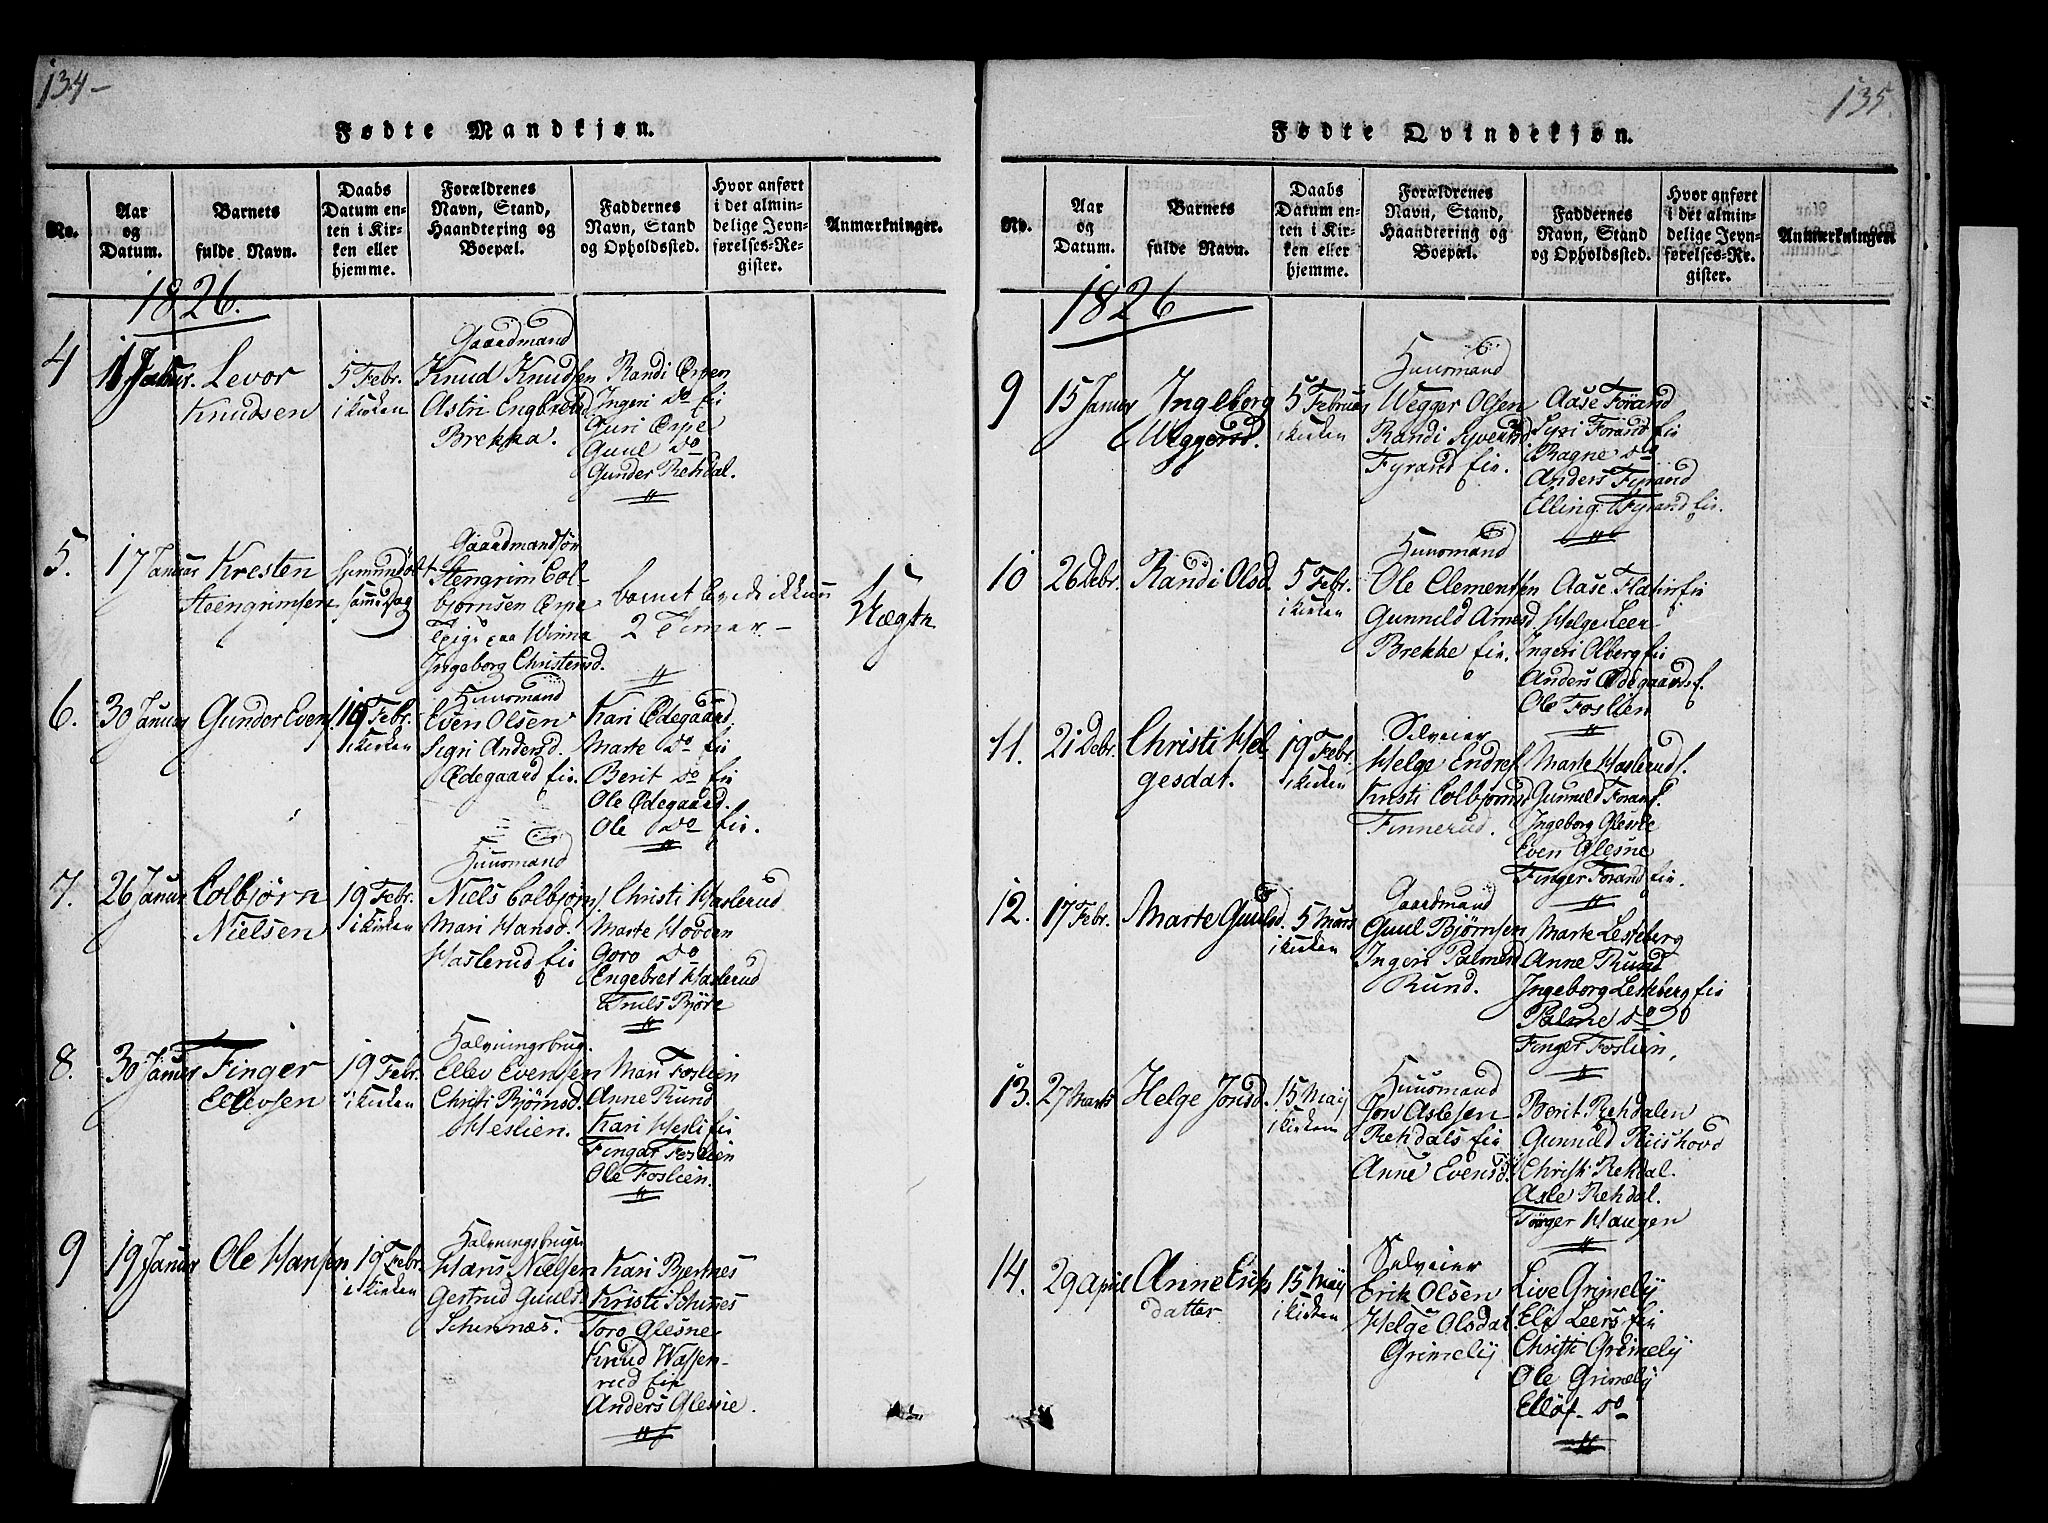 134-
Fødte Mandkjøn.
No.
Aar
og
Datum.
Barnets
fulde Navn.
Daabs
Datum en-
ten i Kir-
ken eller
hjemme.
Forældrenes
Navn, Stand,
Haandtering og
Boepæl.
Faddernes
Navn, Stand
og Opholdssted.
Hvor anført
i det almin-
delige Jevn-
førelses-Re-
gister.
Anmærkninger.
1826.
4
Janur.
Levor
Knudsen
5 Febr.
i kirken
Gaardmand
Knud Knudsen
Astri Engbretsd
Brekka.
Randi Ørpen
Ingeri do fir
Guri Ørpe
Guul do
Gunder Rehdal.
5.
17 Januar
Kresten
Steengrimsen
samme dag
Gaardmandsøn
Stengrim Col-
bjørnsen Ørpe
Pige paa Winna
Ingeborg Christensd.
barnet levede ikkun
2 Timer -
Uægte
6.
30 Januar
Gunder Evens.
19 Febr.
i kirken
Huusmand
Even Olsen
Sigri Andersd.
Ødegaard fir.
Kari Ødegaard.
Marte do fir
Berit do fir
Ole Ødegaard.
Ole do fir.
7.
26 Januar
Colbjørn
Nielsen
19 Febr.
i kirken
Huusmand
Niels Colbjørns.
Mari Hansd.
Haslerud fir
Christi Haslerud
Marte Hovden
Goro do
Engebret Haslerud
Knuls Bjøre
8.
30 Januar
Finger
Ellevsen
19 Febr.
i kirken
Halvningsbrug.
Ellev Evensen
Christi Bjørnsd.
Heslien.
Mari Foslien
Anne Rund
Kari Hesli fir
Finger Foslien
Ole Foslien.
9
19 Januar
Ole Hansen
19 Febr.
i kirken
Halvningsbruger
Hans Nielsen
Gertrud Guuls.
Schinnæs.
Kari Bjertnes
Kristi Schinnes
Toro Glesne
Knud Wassen-
rud fir
Anders Glesne.
135.
Fødte Qvindekjøn.
No.
Aar
og
Datum.
Barnets
fulde Navn.
Daabs
Datum en-
ten i Kir-
ken eller
hjemme.
Forældrenes
Navn, Stand,
Haandtering og
Boepæl.
Faddernes
Navn, Stand
og Opholdssted.
Hvor anført
i det almin-
delige Jevn-
førelses-Re-
gister.
Anmærkninger
1826
9
15 Januar
Ingeborg
Weggersd.
5 Februar
i kirken
Huusmand
Wegger Olsen
Randi Syversd
Fyrand fir.
Aase Forand
Sysi Forand fir
Ragne do
Anders Fyrand
Elling Fyrand fir.
10
26 Debr.
Randi Olsd.
5 Febr.
i kirken
Huusmand
Ole Clementsen
Gunnild Arnesd
Brekke fir.
Aase Flahir fir
Helge Leer
Ingeri Olberg fir
Anders Ødegaards f.
Ole Foslien
11.
21 Debr.
Christi Hel-
gesdat.
19 Febr.
i kirken
Selveier
Helge Endres.
Kristi Colbjørnsd
Finnerud.
Marte Haslerud f.
Gunnild Forand f.
Ingeborg Glesne
Even Glesne
Finger Forand fir.
12.
17 Febr.
Marte Guulsd.
5 Mars
i kirken
Gaardmand
Guul Bjørnsen
Ingeri Palmesd
Rund.
Marte Lesteberg
Anne Rund
Ingeborg Lesteberg fir
Palme do
Finger Foslien.
13.
27 Marts
Helge Jonsd.
15 Maij
i kirken
Huusmand
Jon Aslesen
Rehdals fir
Anne Evensd.
Berit Rehdalen
Gunnild Riishovd
Christi Rehdal.
Asle Rehdal.
Torger Haugen
14.
29 April
Anne Eriks
datter
15 Maij
i kirken
Selveier
Erik Olsen
Helge Olsdat.
Grimelij
Live Grimelij
Eli Leers fir
Christi Grimelij
Ole Grimelij
Elløf do